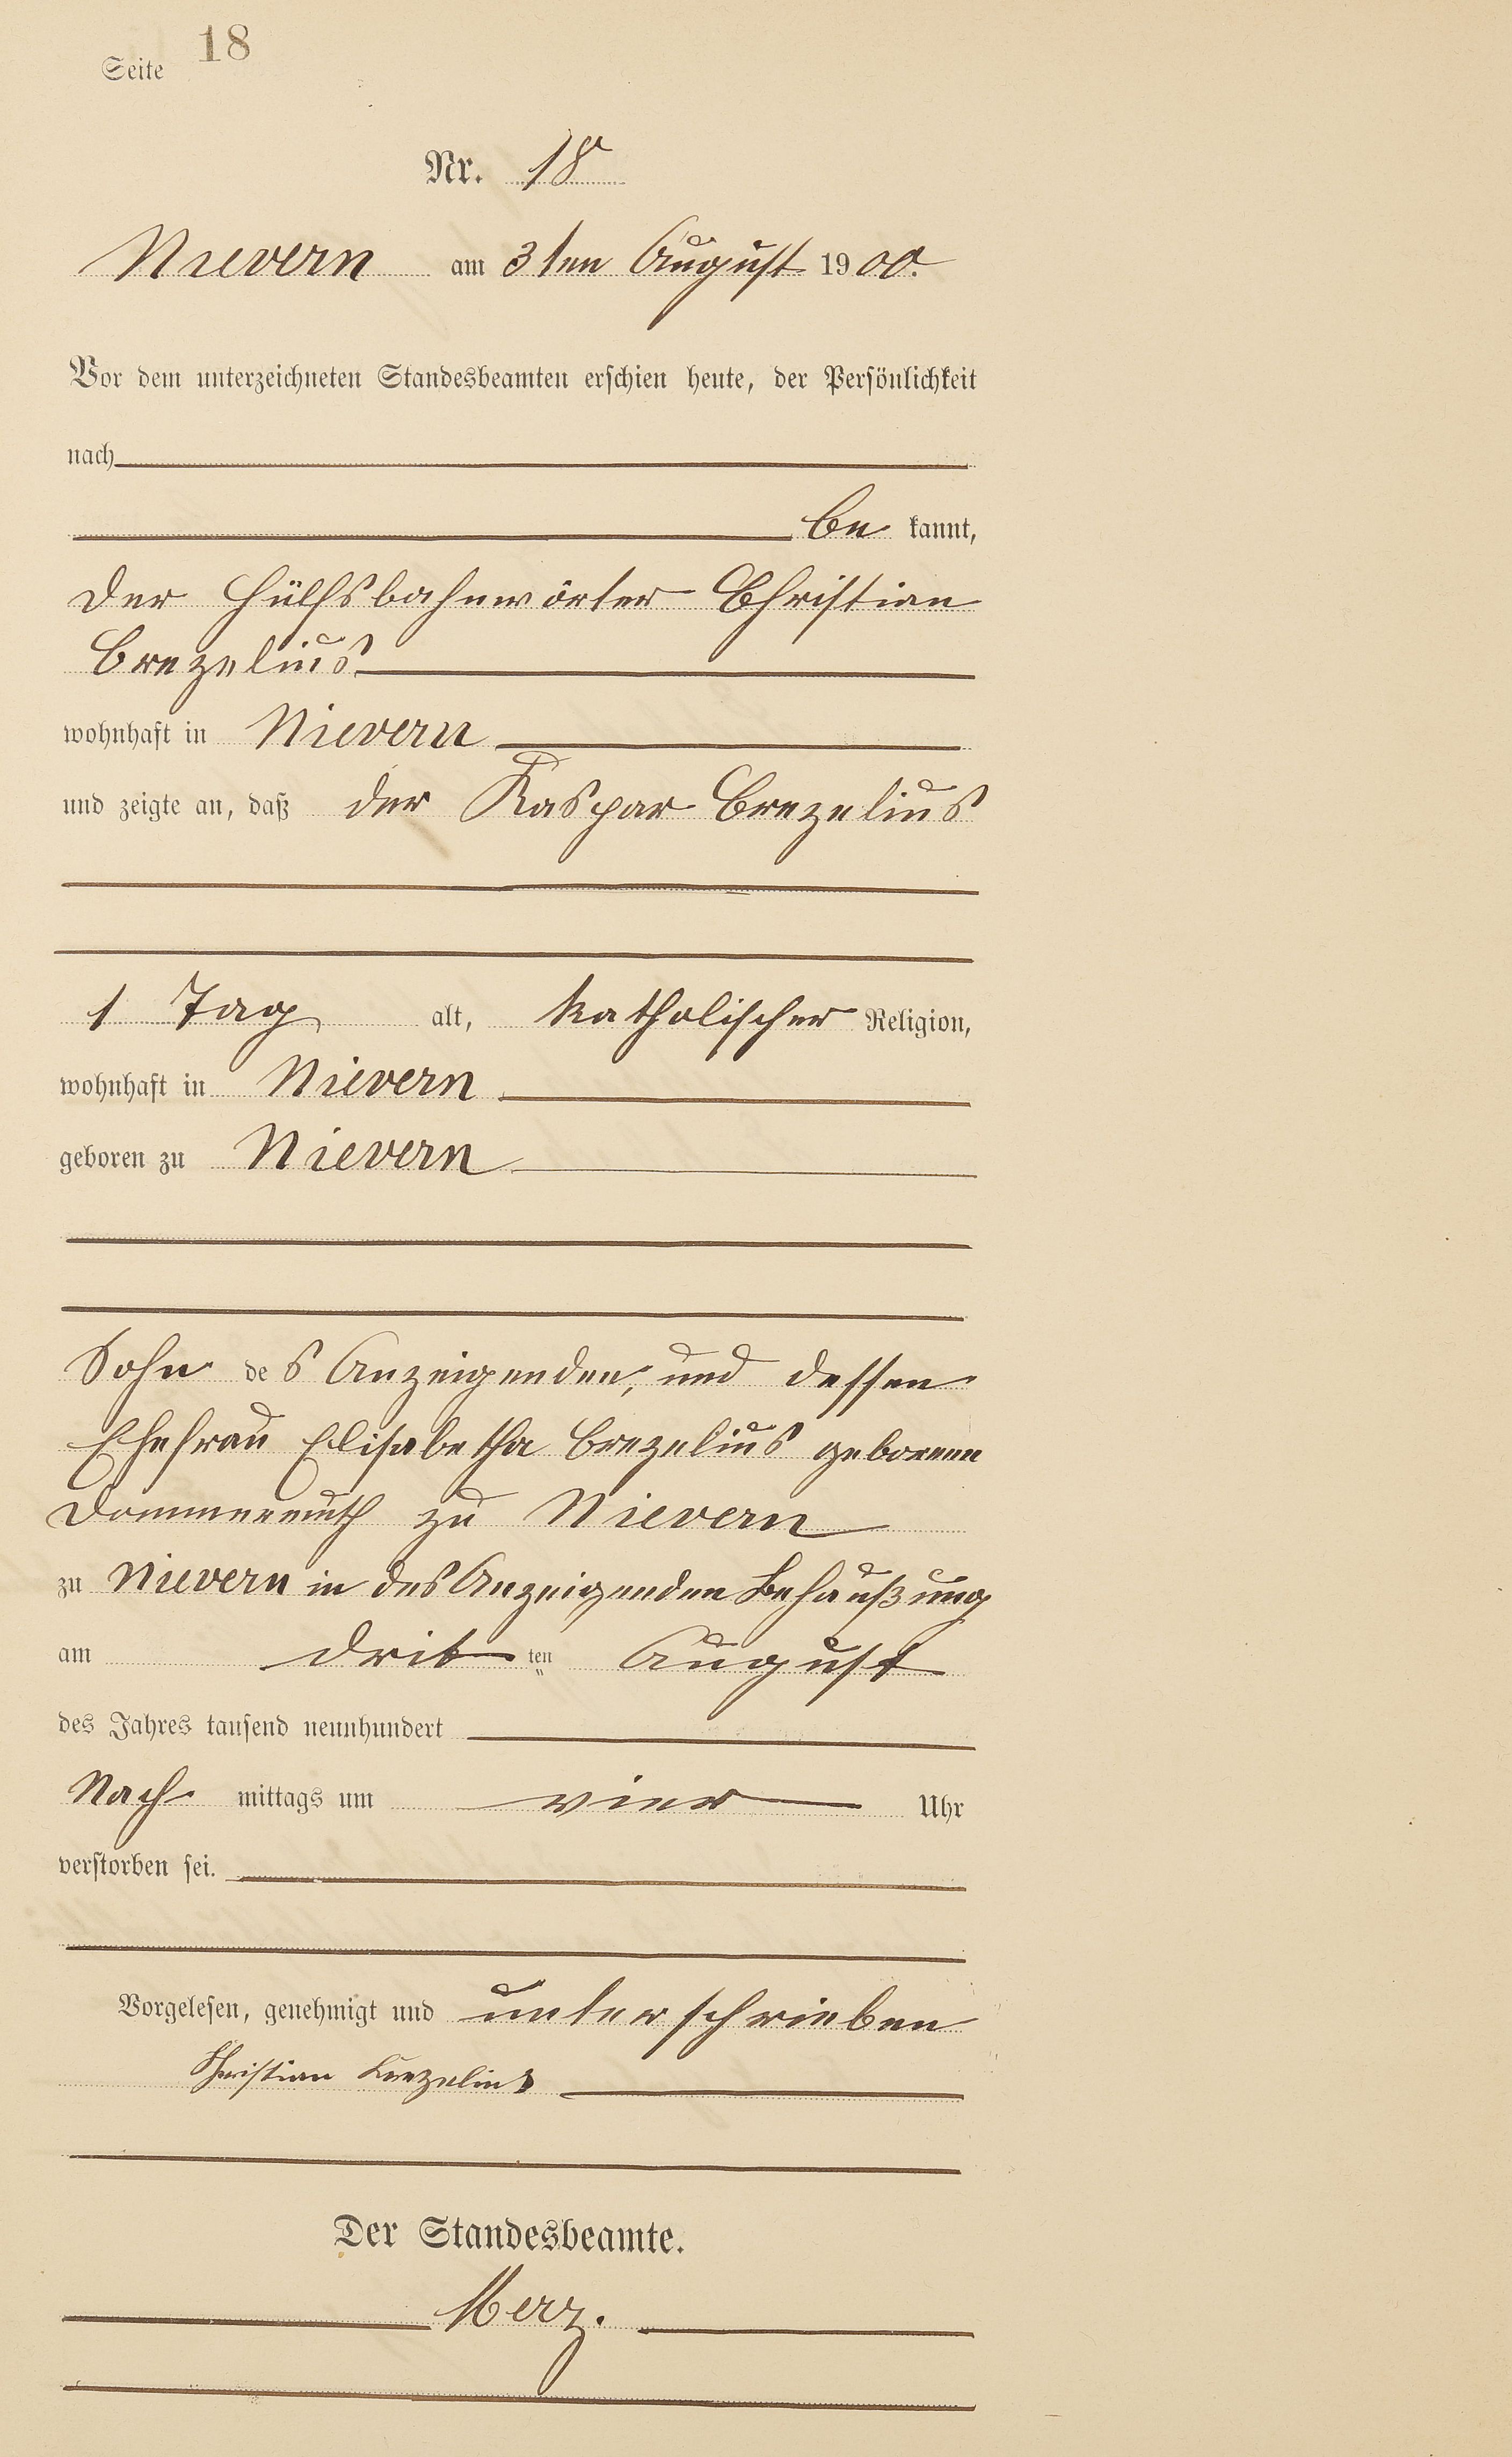 Seite 18
Nr. 18
Nievern am 3ten August 1900.
Vor dem unterzeichneten Standesbeamten erschien heute, der Persönlichkeit
nach
be kannt,
der Hülfsbahnwärter Christian
Brezelius
wohnhaft in Nievern
und zeigte an, daß der Kaspar Brezelius
1 Tag alt, katholischer Religion,
wohnhaft in Nievern
geboren zu Nievern
Sohn des Anzeigenden, und dessen
Ehefrau Elisabetha Brezelius geborene
Dommermuth zu Nievern
zu Nievern in des Anzeigenden Behaußung
am drit ten August
des Jahres tausend neunhundert
Nach mittags um vier Uhr
verstorben sei.
Vorgelesen, genehmigt und unterschrieben
Christian Brezelius
Der Standesbeamte.
Merz.